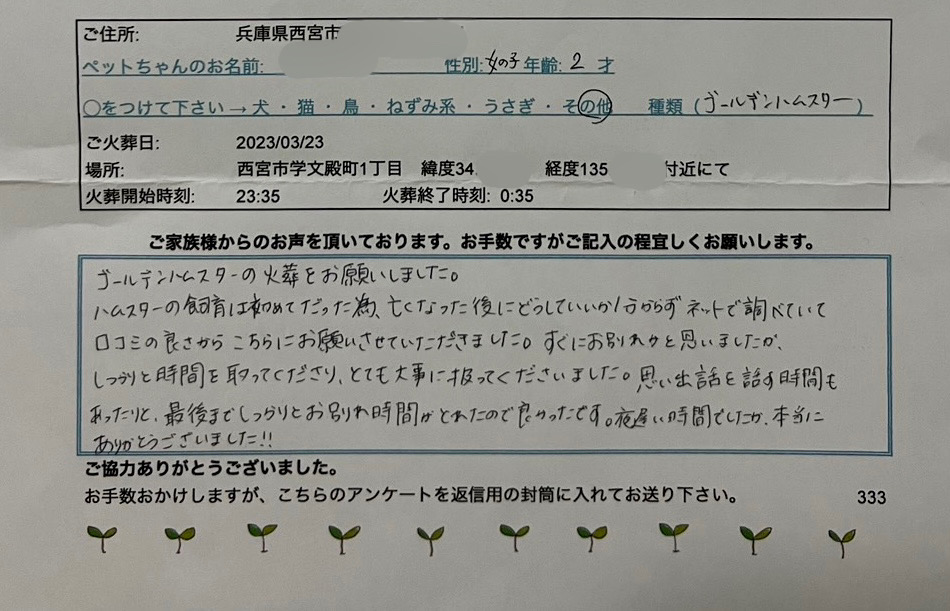 ご住所: 兵庫県西宮市
ペットちゃんのお名前: 性別:女の子 年齢: 2 才
○をつけて下さい→ 犬・猫・鳥・ねずみ系・うさぎ・その他 種類(ゴールデンハムスター)
ご火葬日: 2023/03/23
場所: 西宮市学文殿町1丁目 緯度34. 経度135 付近にて
火葬開始時刻: 23:35 火葬終了時刻: 0:35
ご家族様からのお声を頂いております。お手数ですがご記入の程宜しくお願いします。
ゴールデンハムスターの火葬をお願いしました。
ハムスターの飼育は初めてだった為、亡くなった後にどうしていいか分からずネットで調べていて
口コミの良さからこちらにお願いさせていただきました。すぐにお別れかと思いましたが、
しっかりと時間を取ってくださり、とても大事に扱ってくださいました。思い出話を話す時間も
あったりと、最後までしっかりとお別れ時間がとれたので良かったです。夜遅い時間でしたが、本当に
ありがとうございました!!
ご協力ありがとうございました。
お手数おかけしますが、こちらのアンケートを返信用の封筒に入れてお送り下さい。 333